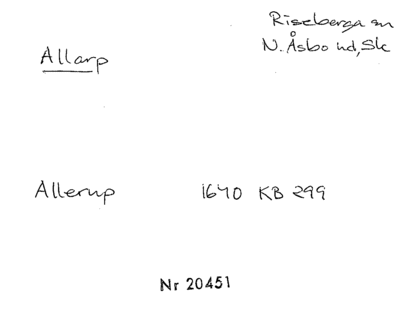 Riseberga sn
N. Åsbo hd, Sk
Allarp
Allerup 1670 KB 299
Nr 20451